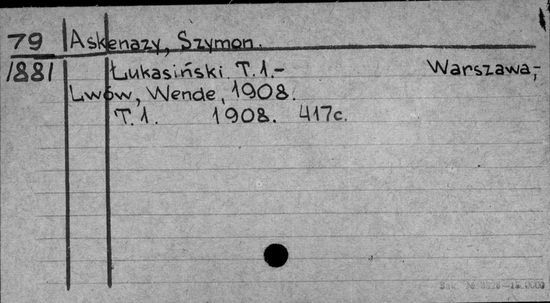 79 Askenazy, Szymon.
1881 Łukasiński. T.1.- Warszawa,-
Lwów, Wende, 1908.
T.1. 1908. 417c.